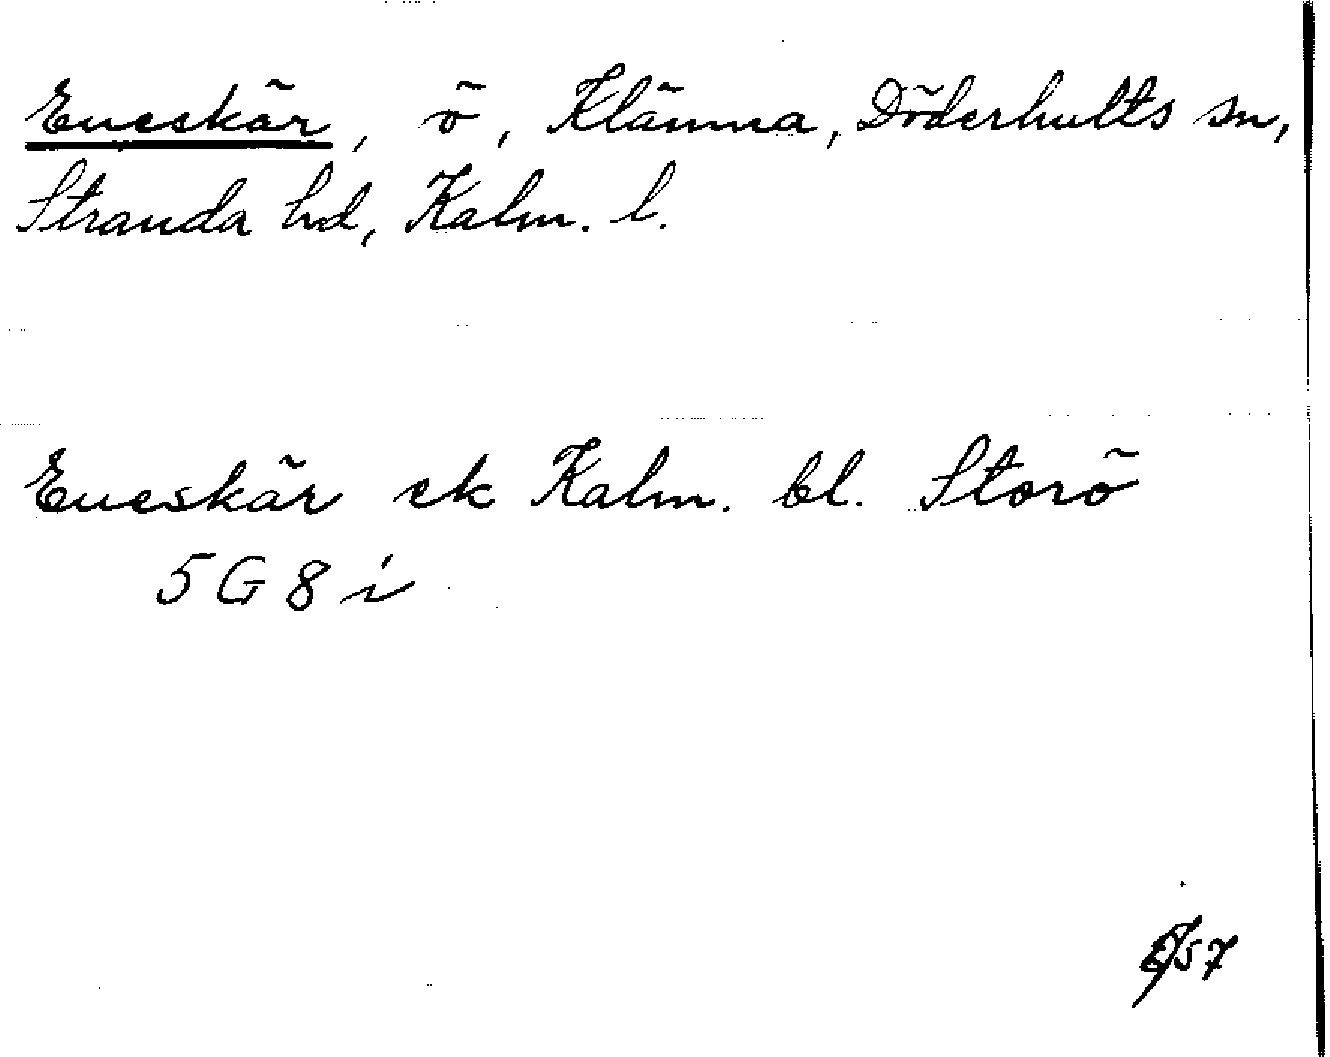 Eneskär, ö, Klämna, Döderhults sn,
Stranda hd, Kalm. l.
Eneskär ek Kalm. bl. Storö
5 G 8 i
/57